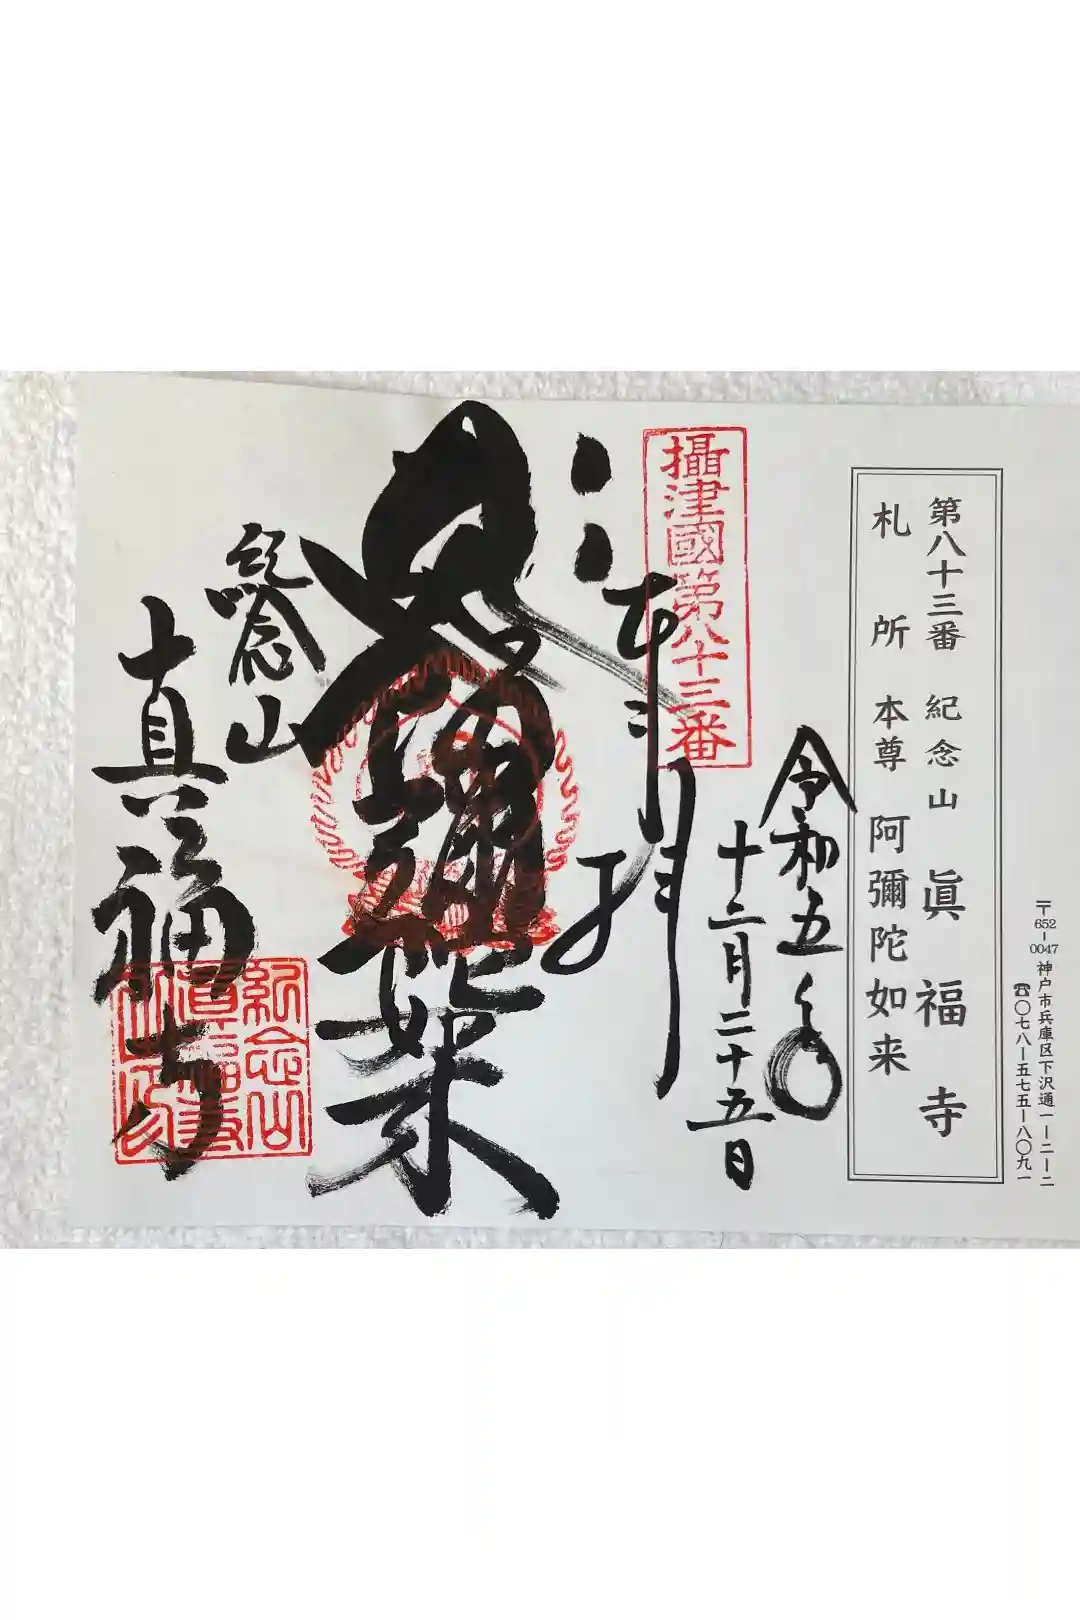 〒652-0047 神戸市兵庫区下沢通一ー二ー二
☎〇七八ー五七五ー八〇九一
第八十三番 紀念山 眞福寺
札所 本尊 阿彌陀如来
令和五年
十二月二十五日
攝津國第八十三番
奉拝
彌陀如来
紀念山
真福寺
紀念山